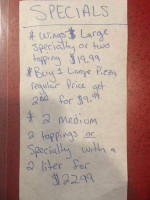 SPECIALS
* Wings & Large
specialty or two
topping $19.99
* Buy 1 Large Pizza
regular Price get
2nd for $9.99
* 2 medium
2 toppings or
Specialty with a
2 liter for
$22.99